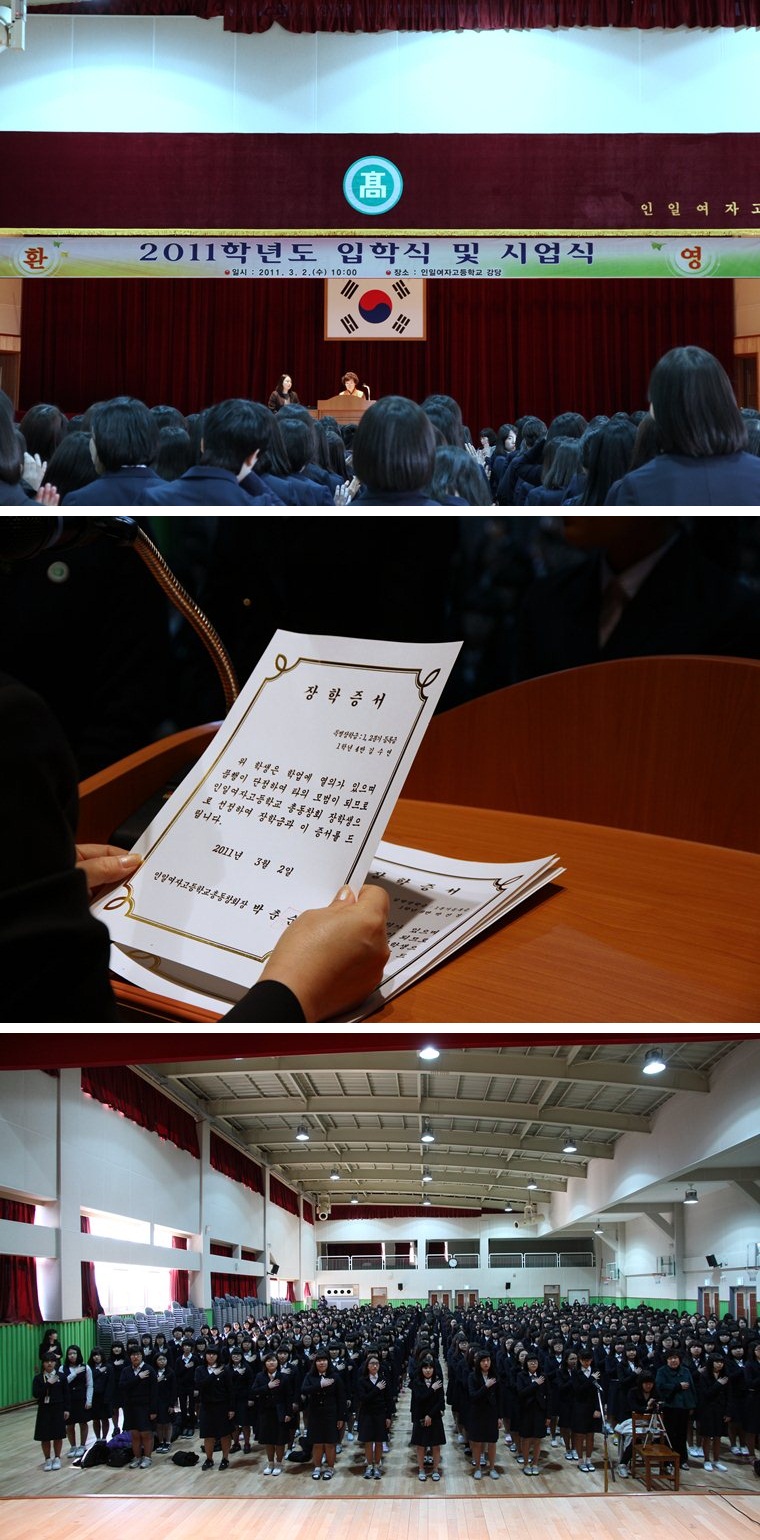 高
인 일 여 자 고
환
2011학년도 입학식 및 시업식
영
일시 : 2011. 3. 2.(수) 10:00 장소 : 인일여자고등학교 강당
장 학 증 서
특별장학금 : 1, 2분기 등록금
1학년 4반 김 수 연
위 학생은 학업에 열의가 있으며
품행이 단정하여 타의 모범이 되므로
인일여자고등학교 총동창회 장학생으
로 선정하여 장학금과 이 증서를 드
립니다.
2011년 3월 2일
인일여자고등학교총동창회장 박 춘 순
장 학 증 서
있으며
되므로
학생으
드